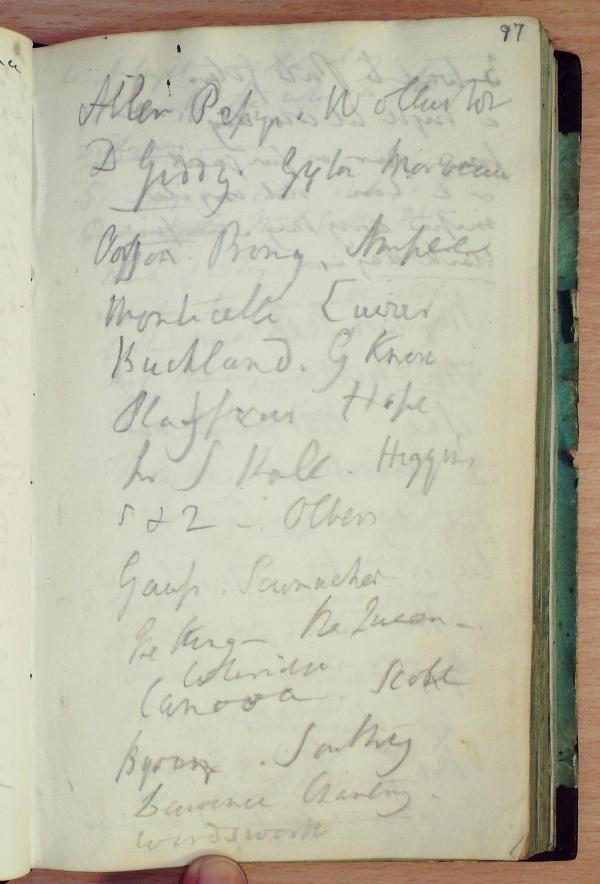 97
Allen Pepys. Wollaston
D Giddy. Gyton Morveau
Prony. Ampere
Monticelli Cuvier
Buckland. G Knox
Playfair Hope
Sr J Hall. Higgins
5 & 2 - Olbers
Gauss. Scumacher
The King - The Queen -
Coleridge
Canova. Scott
Byron. Southey
Lawrence Chantry.
Wordsworth